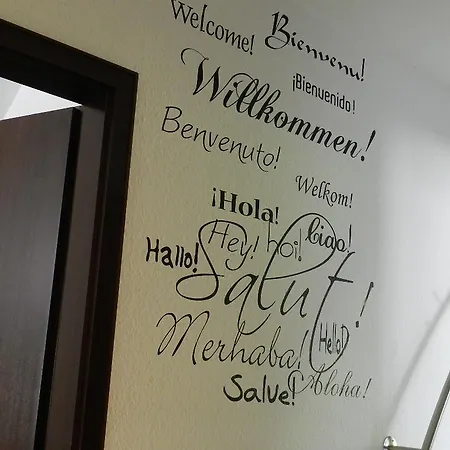 Welcome! Bienvenu!
¡Bienvenido!
Willkommen!
Benvenuto!
Welkom!
¡Hola!
Hey! hoi! Ciao!
Hallo!
Salut!
Merhaba! Hello!
Salve! Aloha!